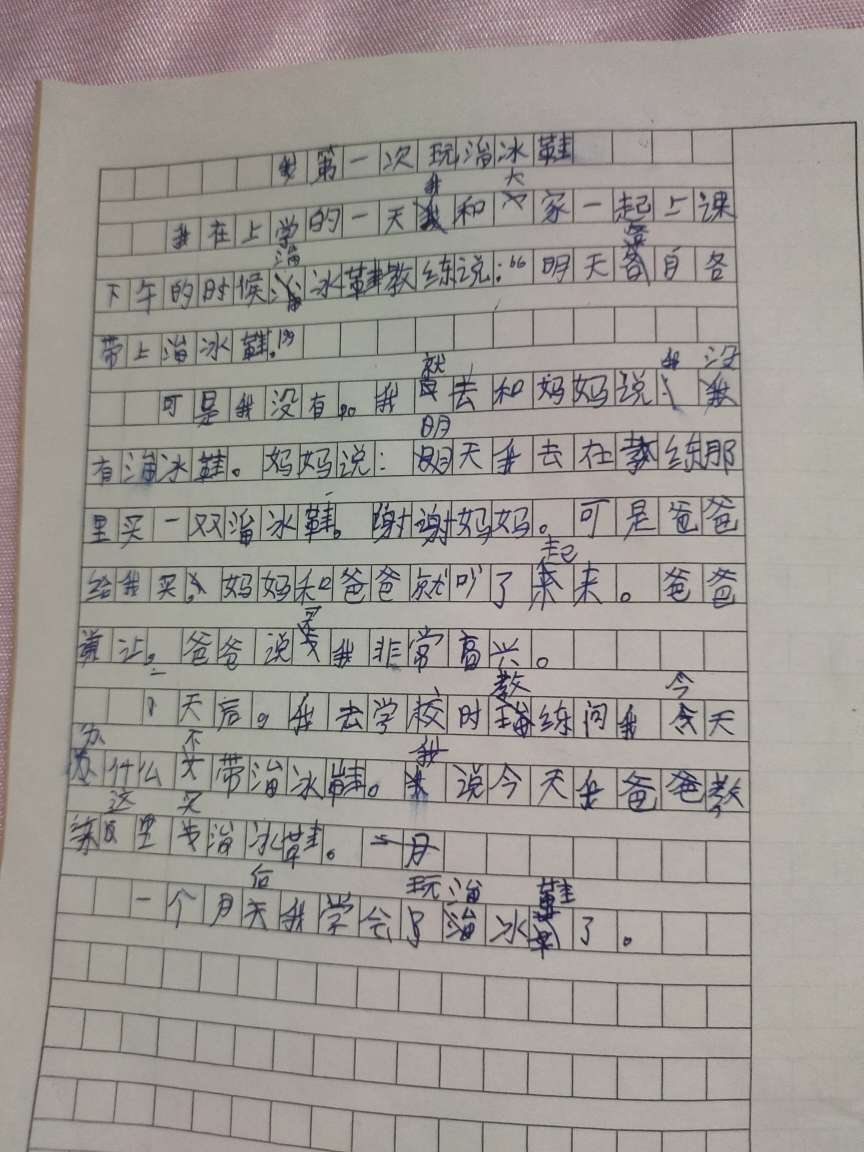 我第一次玩溜冰鞋
我在上学的一天我和大家一起上课
下午的时候溜冰鞋教练说：“明天各自各
带上溜冰鞋。”
可是我没有。我就去和妈妈说：我没
有溜冰鞋。妈妈说：明天我去在教练那
里买一双溜冰鞋。谢谢妈妈。可是爸爸
给我买，妈妈和爸爸就吵了起来。爸爸
说买我非常高兴。
天后。我去学校时教练问我今天
为什么不带溜冰鞋。我说今天我爸爸教
练这里买溜冰鞋。
一个月后我学会了玩溜冰鞋了。